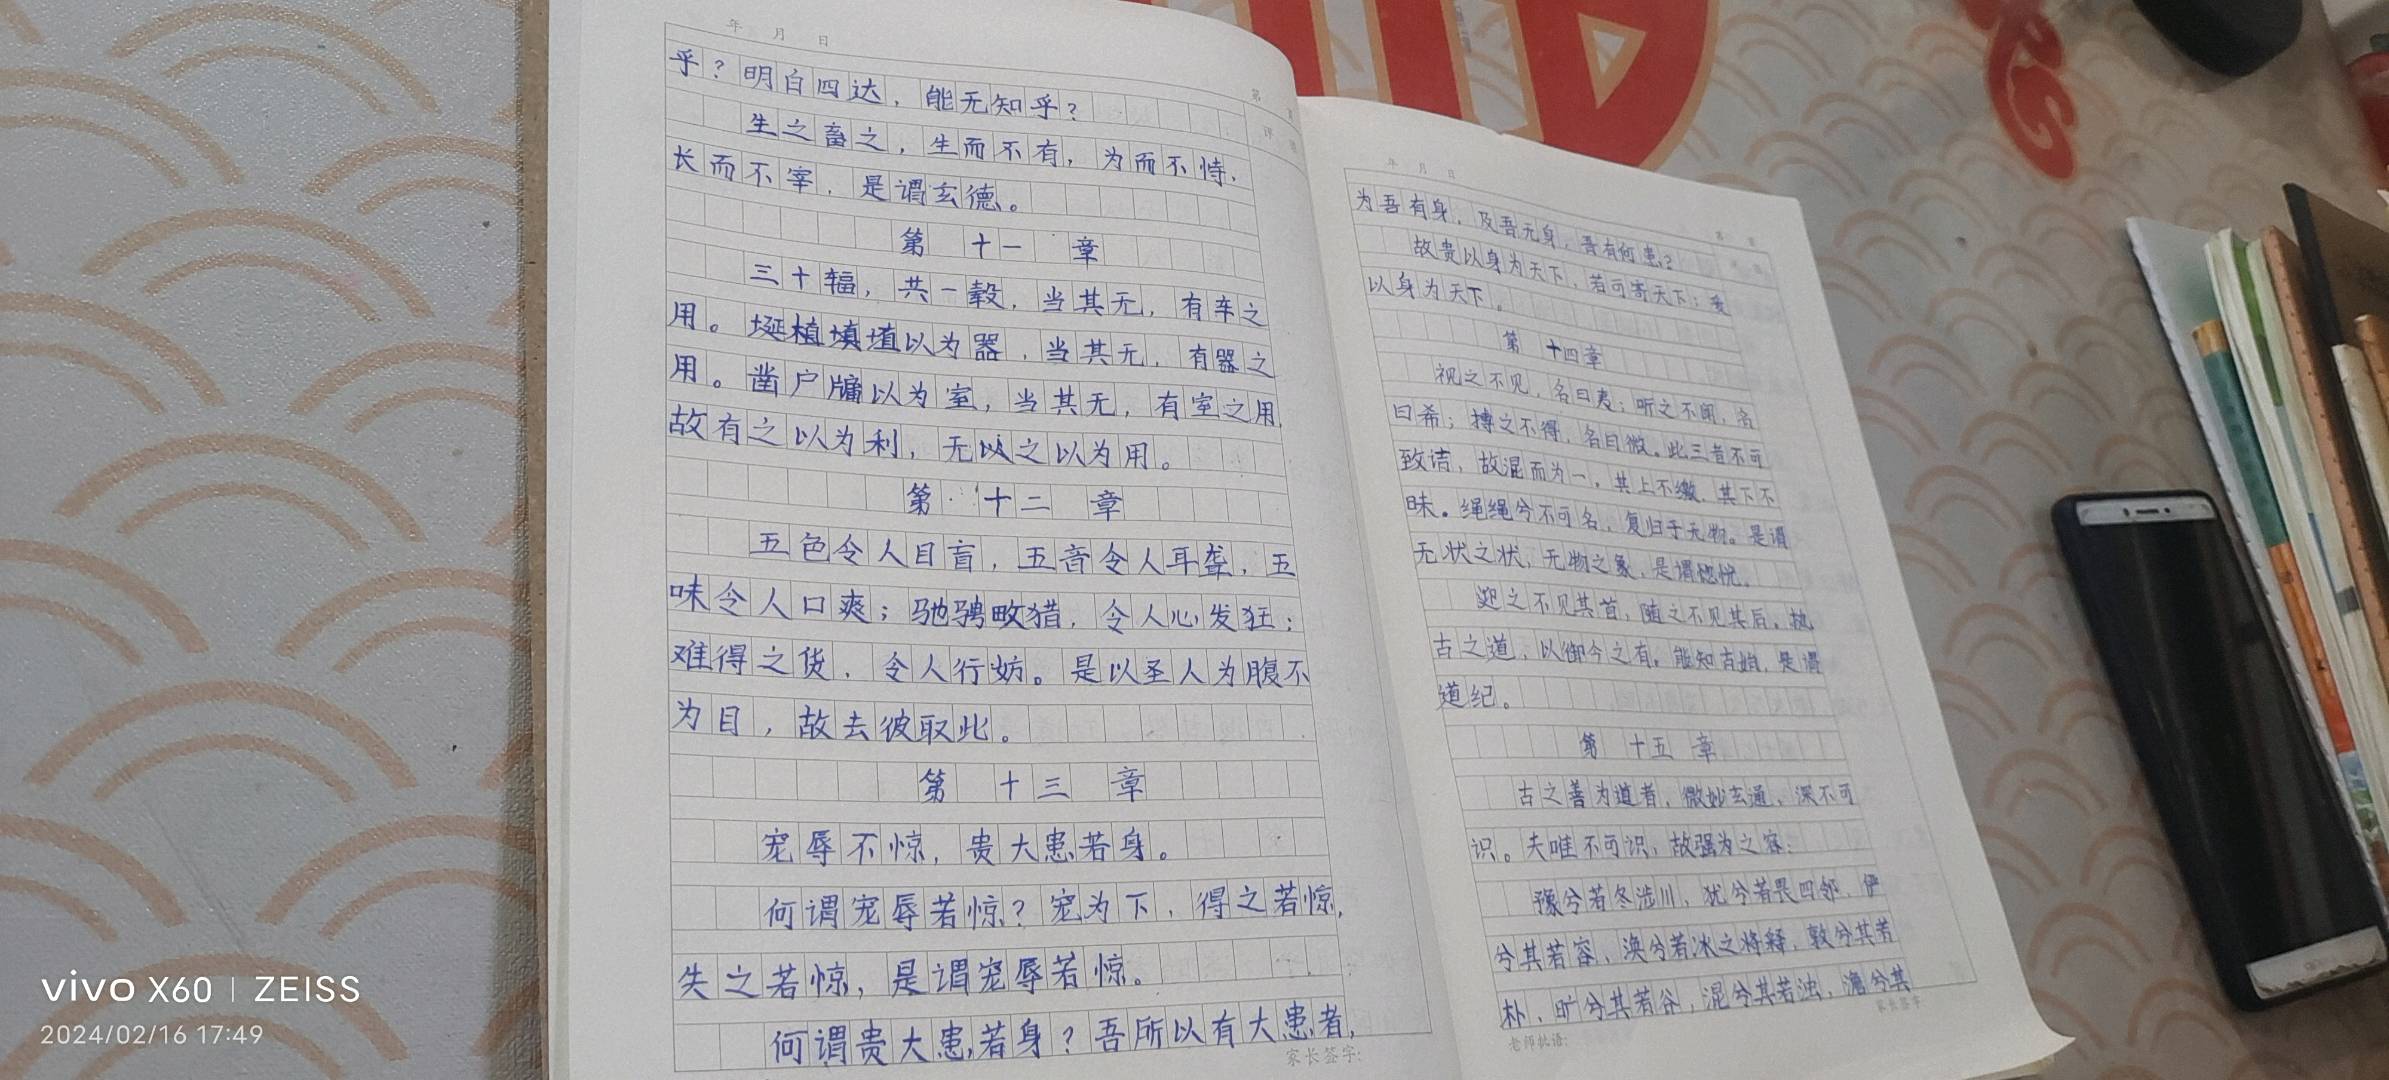 年 月 日
乎？明白四达，能无知乎？
生之畜之，生而不有，为而不恃，
长而不宰，是谓玄德。
第 十一 章
三十辐，共一毂，当其无，有车之
用。埏植填埴以为器，当其无，有器之
用。凿户牖以为室，当其无，有室之用，
故有之以为利，无以之以为用。
第 十二 章
五色令人目盲，五音令人耳聋，五
味令人口爽；驰骋畋猎，令人心发狂；
难得之货，令人行妨。是以圣人为腹不
为目，故去彼取此。
第 十三 章
宠辱不惊，贵大患若身。
何谓宠辱若惊？宠为下，得之若惊，
失之若惊，是谓宠辱若惊。
何谓贵大患若身？吾所以有大患者，
家长签字:
年 月 日
为吾有身，及吾无身，吾有何患？
故贵以身为天下，若可寄天下；爱
以身为天下。
第 十四章
视之不见，名曰夷；听之不闻，名
曰希；搏之不得，名曰微。此三者不可
致诘，故混而为一，其上不皦，其下不
昧。绳绳兮不可名，复归于无物。是谓
无状之状，无物之象，是谓惚恍。
迎之不见其首，随之不见其后。执
古之道，以御今之有。能知古始，是谓
道纪。
第 十五 章
古之善为道者，微妙玄通，深不可
识。夫唯不可识，故强为之容：
豫兮若冬涉川，犹兮若畏四邻，俨
兮其若容，涣兮若冰之将释，敦兮其若
朴，旷兮其若谷，混兮其若浊，澹兮其
老师批语:
家长签字
vivo X60 | ZEISS
2024/02/16 17:49